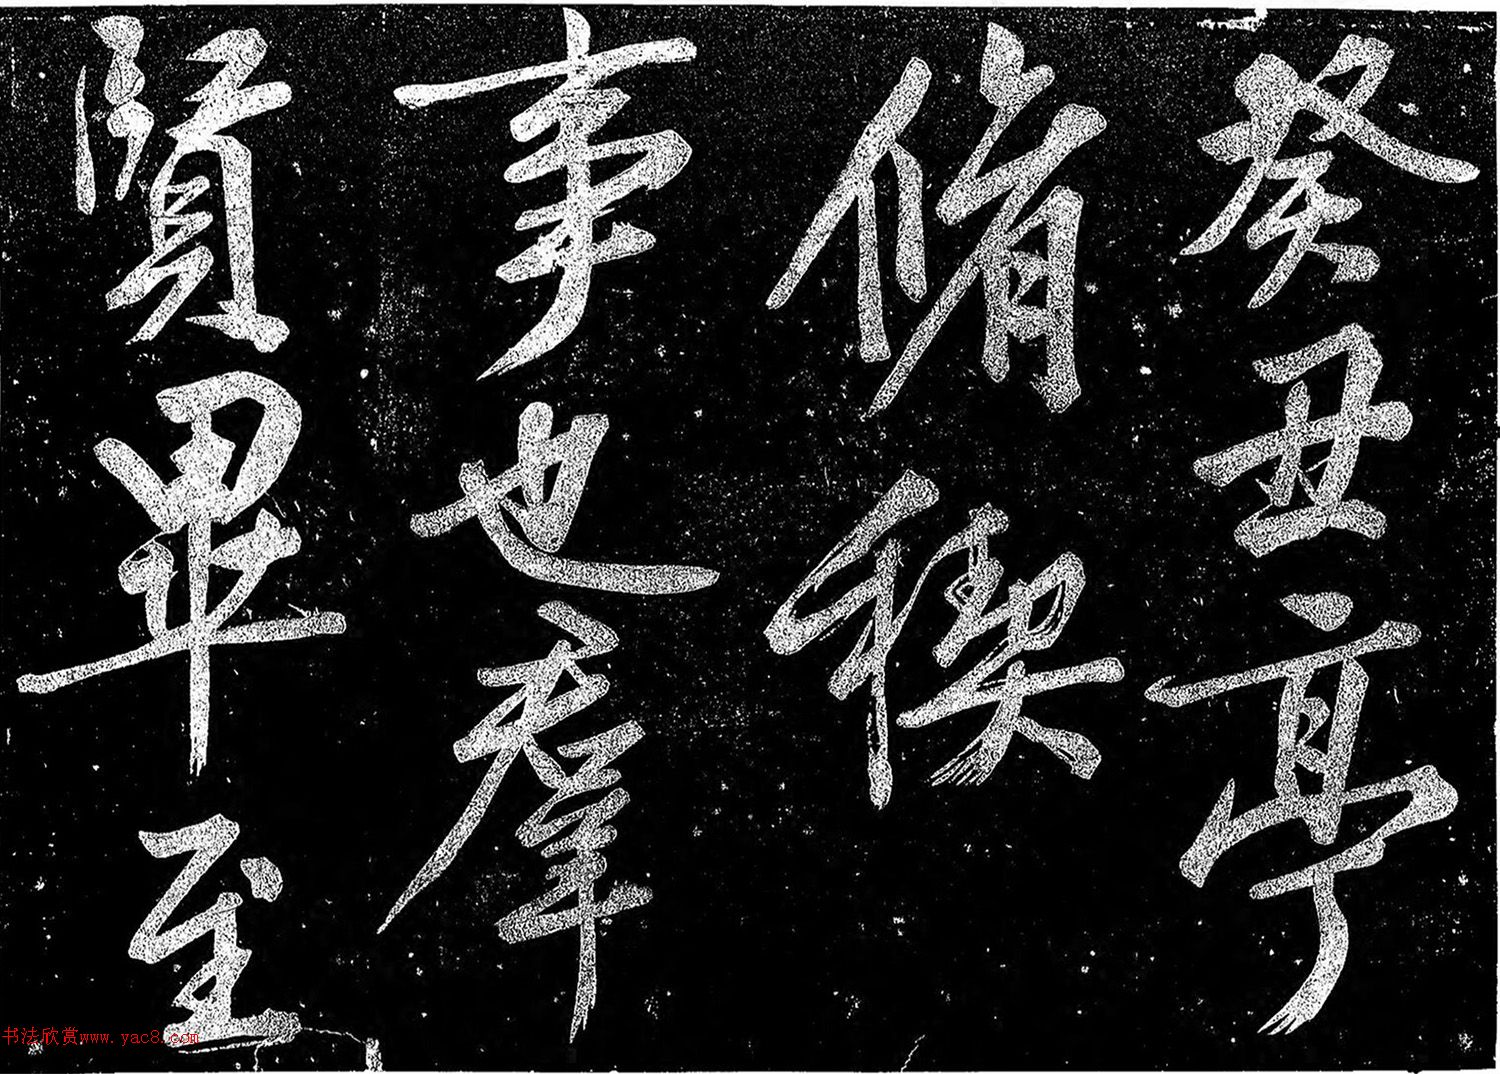 癸丑亭
脩稧
事也羣
賢畢至
书法欣赏www.yac8.com